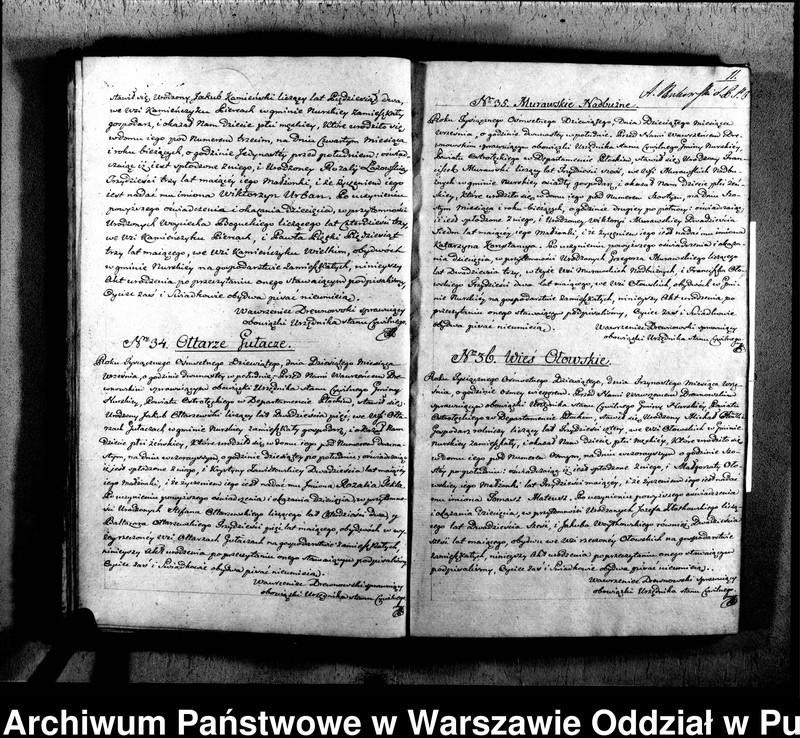 stawił się Urodzony Jakub Kamieński liczący lat Pięćdziesiąt dwa,
we Wsi Kamieńczyku Piercach w gminie Nurskiey zamieszkały
gospodarz, i okazał Nam Dziecie płci męzkiey, które urodziło się
w domu iego pod Numerem trzecim, na dniu Czwartym Miesiąca
i roku bieżących, o godzinie Jedynastey przed południem; oświad-
czaiąc iż iest spłodzone z niego, i Urodzoney Rozalij
Trzydzieści trzy lat maiącey iego Małżonki, i że życzeniem iego
iest nadać mu imiona Wiktorzyn Urban. Po uczynieniu
powyższego oświadczenia i okazania dziecięcia, w przytomności
Urodzonych Woyciecha liczącego lat Czterdzieści trzy,
we Wsi Kamieńczyku Piercach, i Pawła Pięćdziesiąt
trzy lat maiącego, we Wsi Kamieńczyku Wielkim, obydwóch
w gminie Nurskiey na gospodarstwie zamieszkałych, ninieyszy
Akt urodzenia po przeczytaniu onego stawaiącym podpisaliśmy,
Oyciec zaś i Swiadkowie obydwa pisać nieumieią.
Wawrzeniec Drewnowski sprawuiący
obowiązki Urzędnika stanu Cywilnego.
Nro 34. Ołtarze Gołacze.
Roku Tysiącznego Ośmsetnego Dziewiątego, dnia Dziesiątego Miesiąca
Września, o godzinie dwunastey w południe. Przed Nami Wawrzeńcem Dre-
wnowskim sprawuiącym obowiązki Urzędnika Stanu Cywilnego Gminy
Nurskiey, Powiatu Ostrołęckiego w Departamencie Płockim, stawił się
Urodzony Jakub Ołtarzewski liczący lat Dwadzieścia pięć, we wsi Ołta-
rzach Gołaczach w gminie Nurskiey zamieszkały gospodarz, i okazał Nam
Dziecie płci żeńskiey, które urodziło się w domu iego pod Numerem
na dniu wczorayszym o godzinie dziesiątey po południu, oświadczaiąc
iż iest spłodzone z niego, i Krystyny Dwadzieścia lat maiącey
iego Małżonki, i że życzeniem iego iest nadać mu Imiona Rozalia Tekla.
Po uczynieniu powyższego oświadczenia i okazania Dziecięcia, w przytomno-
ści Urodzonych Stefana Ołtarzewskiego liczącego lat dwa, i
Baltazara Ołtarzewskiego Trzydzieści pięć lat maiącego, obydwóch w wy-
żey rzeczoney Wsi Ołtarzach Gołaczach na gospodarstwie zamieszkałych,
ninieyszy Akt urodzenia po przeczytaniu onego stawaiącym podpisaliśmy
Oyciec zaś i Swiadkowie obydwa pisać nieumieią.
Wawrzeniec Drewnowski sprawuiący
obowiązki Urzędnika stanu Cywilnego.
11.
Nro 35. Murawskie Nadbużne.
Roku Tysiącznego Ośmsetnego Dziewiątego, Dnia Dziesiątego Miesiąca
Września, o godzinie dwunastey w południe. Przed Nami Wawrzeńcem Dre-
wnowskim sprawuiącym obowiązki Urzędnika Stanu Cywilnego Gminy Nurskiey,
Powiatu Ostrołęckiego w Departamencie Płockim, stawił się Urodzony Fran-
ciszek Murawski liczący lat Trzydzieści sześć, we Wsi Murawskich Nadbuż-
nych w gminie Nurskiey osiadły gospodarz, i okazał Nam dziecie płci żeń-
skiey, które urodziło się w domu iego pod Numerem Szóstym, na dniu
Miesiąca i roku bieżących, o godzinie drugiey po północy, oświadczaiąc,
iż iest spłodzone z niego, i Urodzoney Wiktoryi Murawskiey, Dwadzieścia
Siedm lat maiącey, iego Małżonki, i że życzeniem iego iest nadać mu imiona
Katarzyna Konstancya. Po uczynieniu powyższego oświadczenia i okaza-
nia dziecięcia, w przytomności Urodzonych Grzegorza Murawskiego liczącego
lat Dwadzieścia trzy, w teyże Wsi Murawskich Nadbużnych, i Franciszka Oło-
wskiego Trzydzieści dwa lat maiącego, we Wsi Ołowskich, obydwóch w Gmi-
nie Nurskiey na gospodarstwie zamieszkałych, ninieyszy Akt urodzenia po
przeczytaniu onego stawaiącym podpisaliśmy, Oyciec zaś i Swiadkowie
obydwa pisać nieumieią.
Wawrzeniec Drewnowski sprawuiący
obowiązki Urzędnika stanu Cywilnego.
Nro 36. Wieś Ołowskie.
Roku Tysiącznego Ośmsetnego Dziewiątego, dnia Trzynastego Miesiąca Wrze-
śnia, o godzinie Osmey wieczorem. Przed Nami Wawrzeńcem Drewnowskim
sprawuiącym obowiązki Urzędnika Stanu Cywilnego Gminy Nurskiey, Powiatu
Ostrołęckiego w Departamencie Płockim, stawił się Urodzony Michał
Gospodarz rolniczy, liczący lat Trzydzieści cztery, we wsi Ołowskich w Gminie
Nurskiey zamieszkały, i okazał Nam Dziecie, płci Męzkiey, które urodziło się
w domu iego pod Numerem Osmym, na dniu wczorayszym o godzinie
po południu; oświadczaiąc iż iest spłodzone z niego, i Małgorzaty Oło-
wskiey iego Małżonki, lat Trzydzieści maiącey, i że życzeniem iego iest nadać
mu imiona Tomasz Mateusz. Po uczynieniu powyższego oświadczenia
i okazania Dziecięcia, w przytomności Urodzonych Józefa liczą-
cego lat Dwadzieścia Sześć, i Jakuba również Dwadzieścia
sześć lat maiącego, obydwu we Wsi rzeczoney Ołowskich na gospodarstwie
zamieszkałych, ninieyszy Akt urodzenia po przeczytaniu onego stawaiącym
podpisaliśmy, Oyciec zaś i Swiadkowie obydwa pisać nieumieią.
Wawrzeniec Drewnowski sprawuiący
obowiązki Urzędnika stanu Cywilnego.
Archiwum Państwowe w Warszawie Oddział w Pu